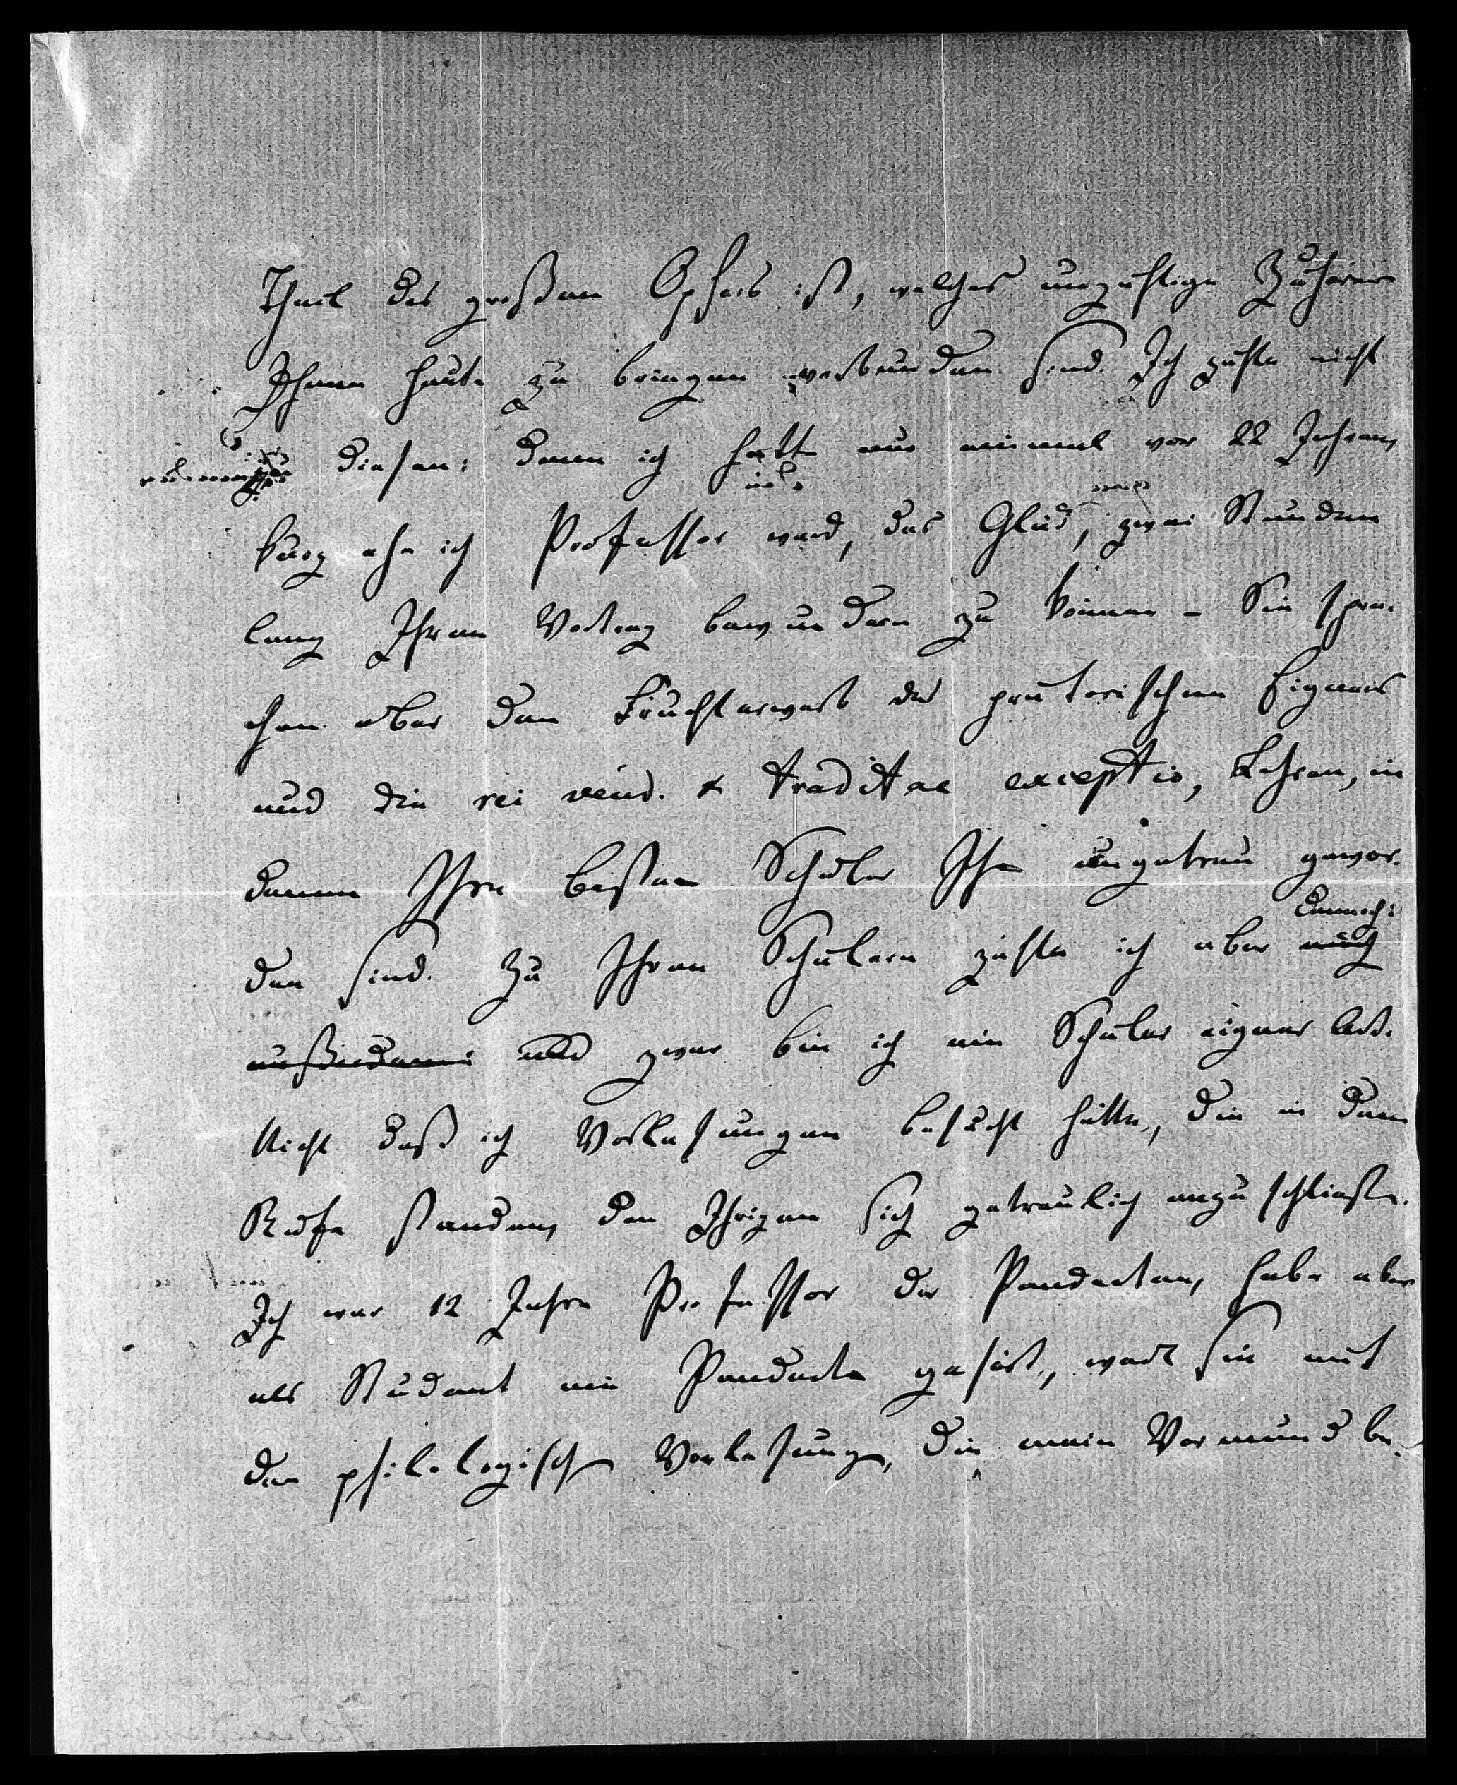 Theil des großen Opfers ist, welches unzählige Zuhörer
Ihnen heute zu bringen verbunden sind. Ich zähle nicht
zu diesen: denn ich hatte nur einmal vor 22 Jahren,
kurz ehe ich Professor ward, das Glück, zwei Stunden
lang Ihren Vortrag bewundern zu können – Sie spra-
chen über den Fruchterwerb des prätorischen Eigners
und die rei vend. & traditae exceptio, Lehren, in
denen Ihre besten Schüler Ihnen ungetreu gewor-
dennoch:
den sind. Zu Ihren Schülern zähle ich aber auch
und zwar bin ich ein Schüler eigner Art.
Nicht daß ich Vorlesungen besucht hätte, die in dem
Rufe standen, den Ihrigen sich getreulich anzuschließen.
Ich war 12 Jahre Professor der Pandecten, habe aber
als Student nie Pandecten gehört, weil sie mit
den philologischen Vorlesungen, die mein Vormund be-